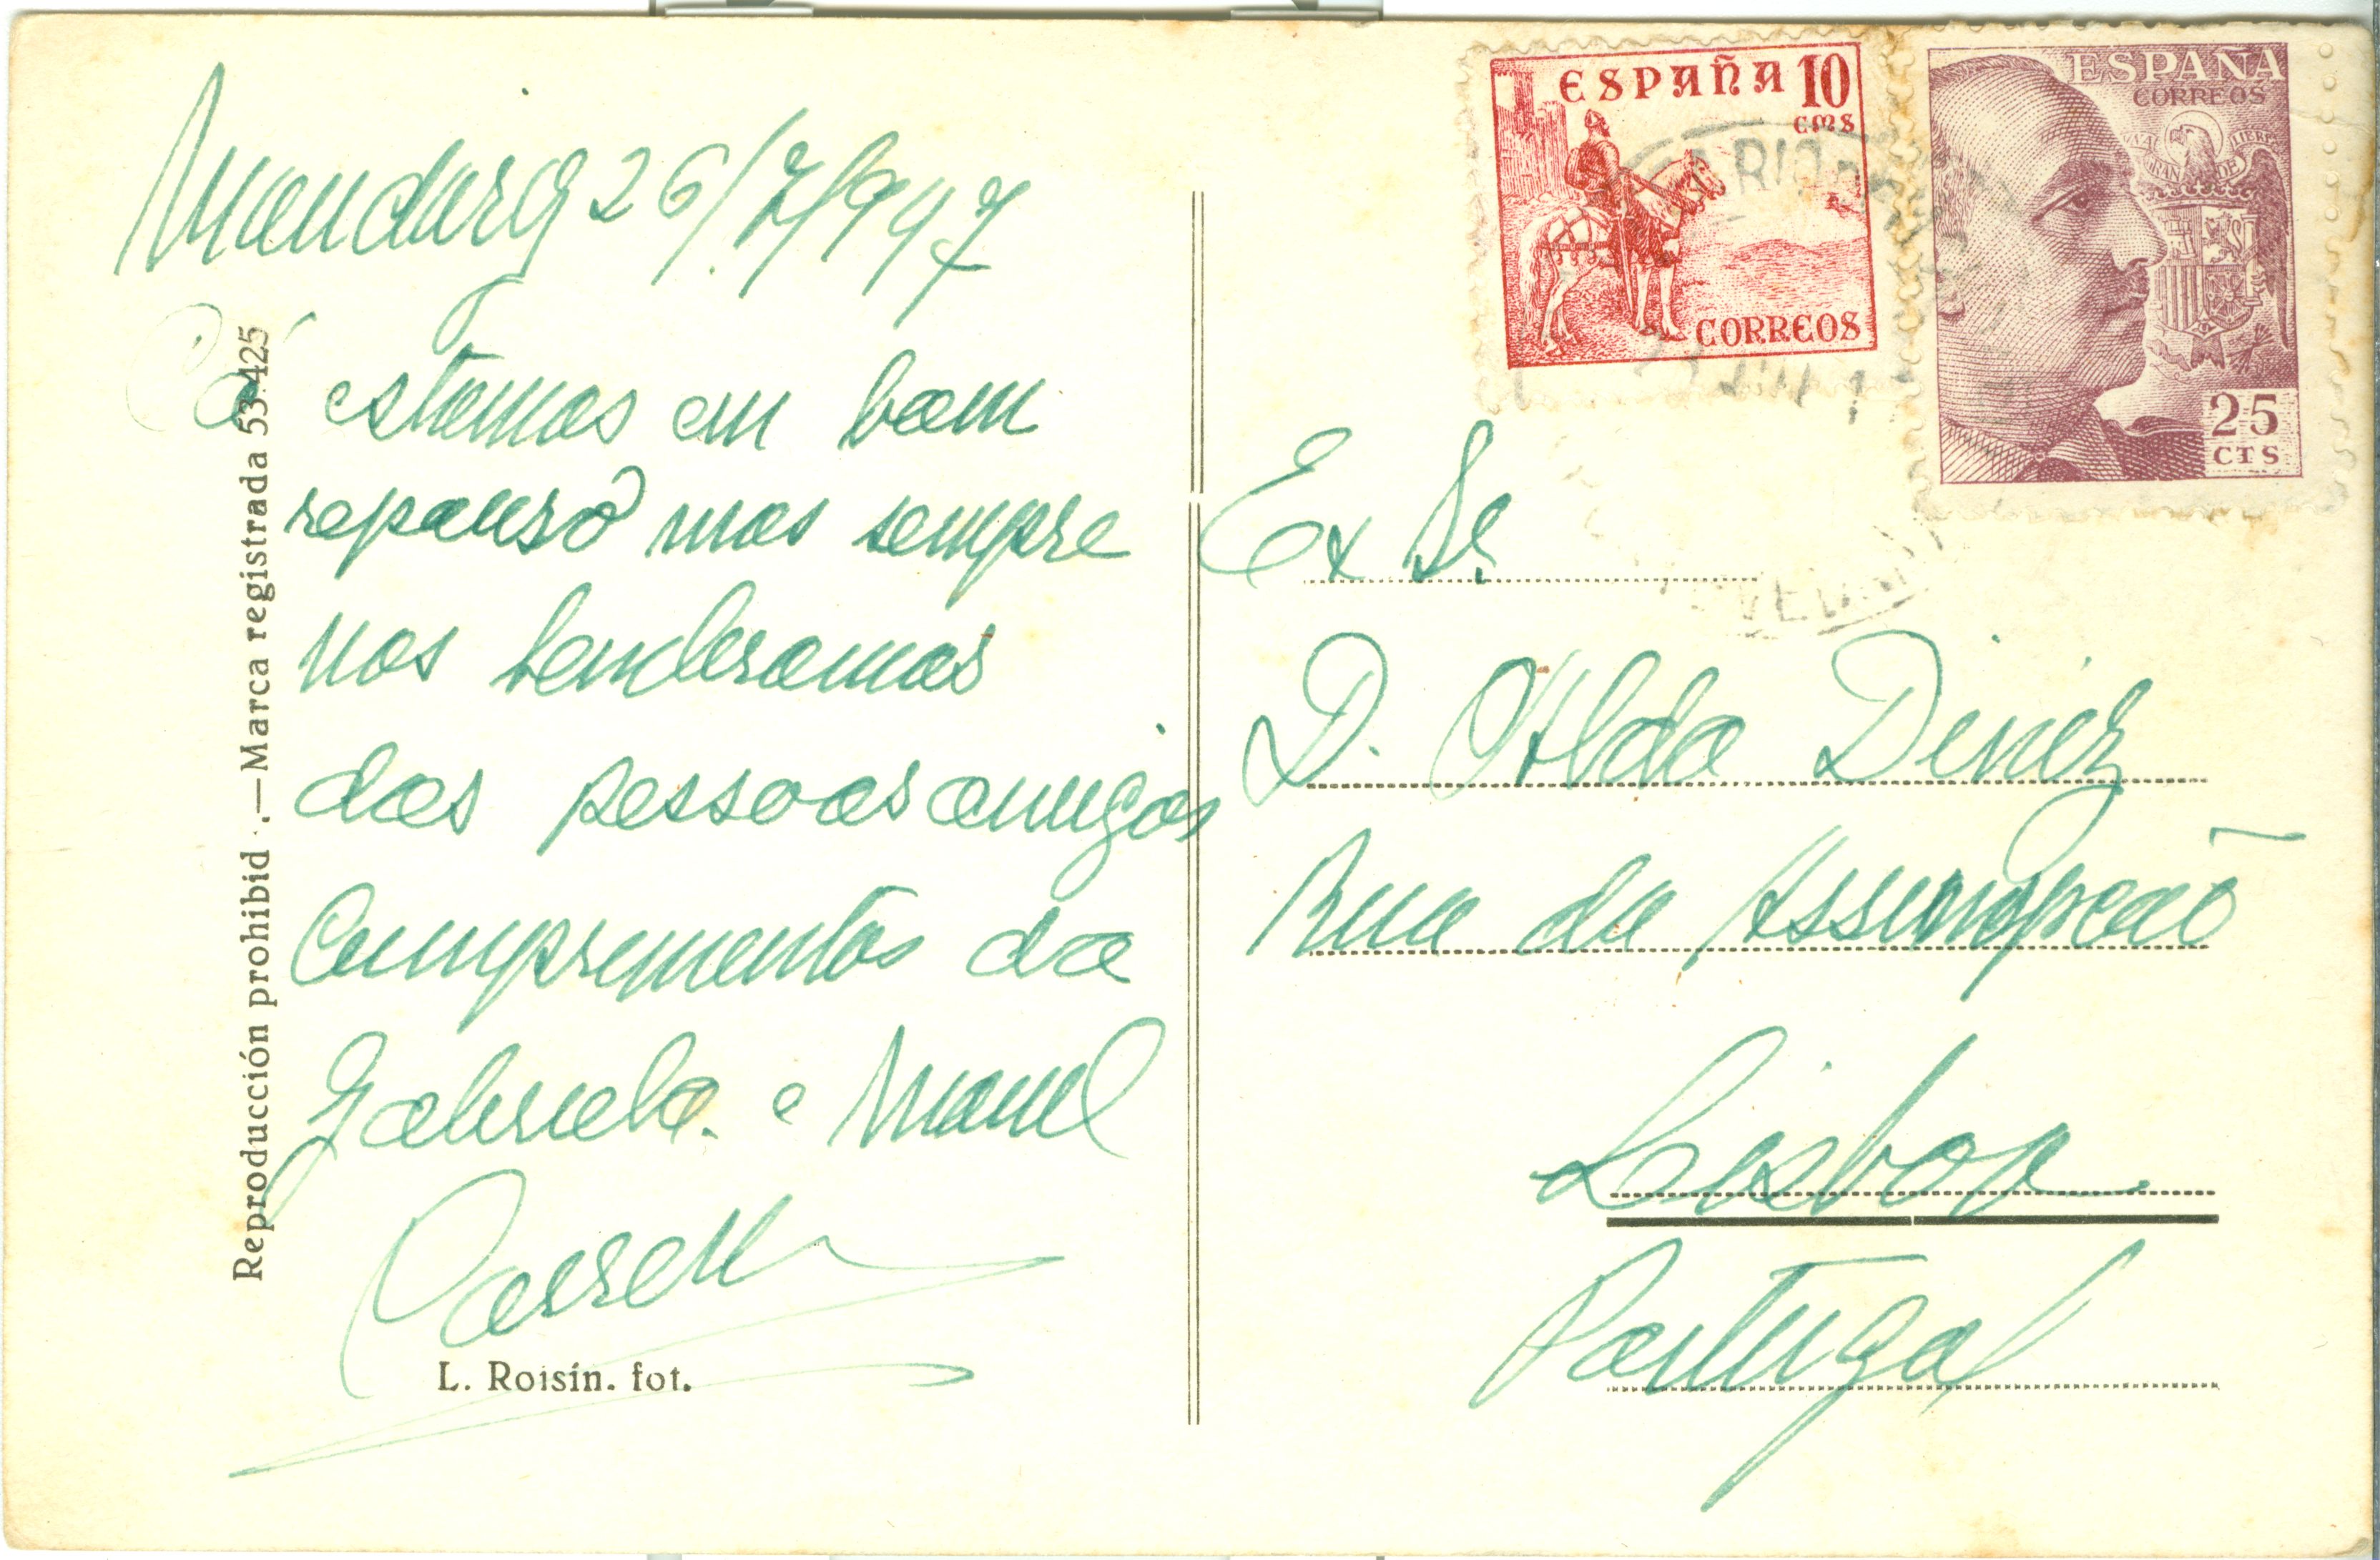 Mondariz 26/7/947
Cá estamos em bom
repouso mas sempre
nos lembramos
das pessoas amigas
Cumprementos da
Gabriela. e Manuel
Reproducción prohibid .—Marca registrada 53425
L. Roisín. fot.
ESPAÑA 10
CMS
CORREOS
ESPAÑA
CORREOS
25
CTS
Ex Sr.
D.
Rua da Assumpção
Lisboa
Portugal